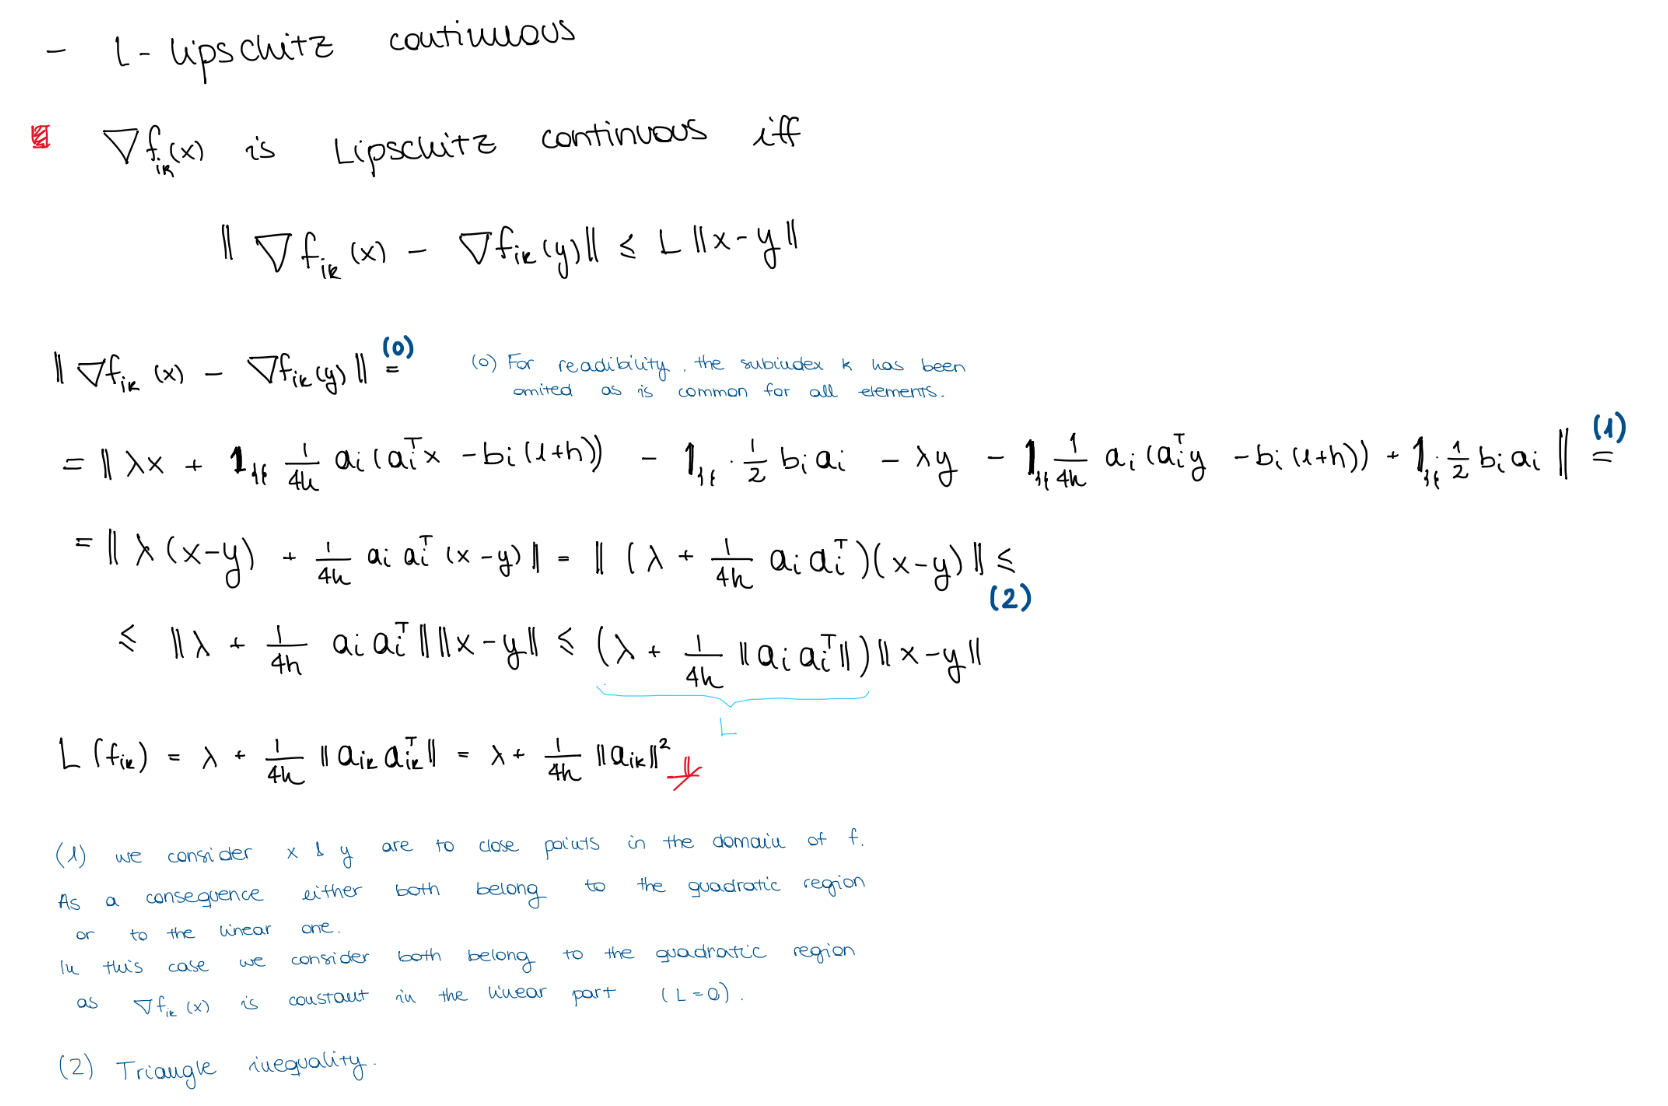 - L-Lipschitz continuous
∇f_ik(x) is Lipschitz continuous iff
‖∇f_ik(x) - ∇f_ik(y)‖ ≤ L‖x-y‖
‖∇f_ik(x) - ∇f_ik(y)‖ = (0)
(0) For readibility, the subindex k has been
omited as is common for all elements.
= ‖λx + 1_{if} 1/4h a_i(a_i^T x - b_i(1+h)) - 1_{if} · 1/2 b_i a_i - λy - 1_{if} 1/4h a_i(a_i^T y - b_i(1+h)) + 1_{if} · 1/2 b_i a_i‖ = (1)
= ‖λ(x-y) + 1/4h a_i a_i^T (x-y)‖ = ‖(λ + 1/4h a_i a_i^T)(x-y)‖ ≤
(2)
≤ ‖λ + 1/4h a_i a_i^T‖‖x-y‖ ≤ (λ + 1/4h ‖a_i a_i^T‖)‖x-y‖
L
L(f_ik) = λ + 1/4h ‖a_ik a_ik^T‖ = λ + 1/4h ‖a_ik‖²
(1) we consider x & y are to close points in the domain of f.
As a consequence either both belong to the quadratic region
or to the linear one.
In this case we consider both belong to the quadratic region
as ∇f_ik(x) is constant in the linear part (L=0).
(2) Triangle inequality.